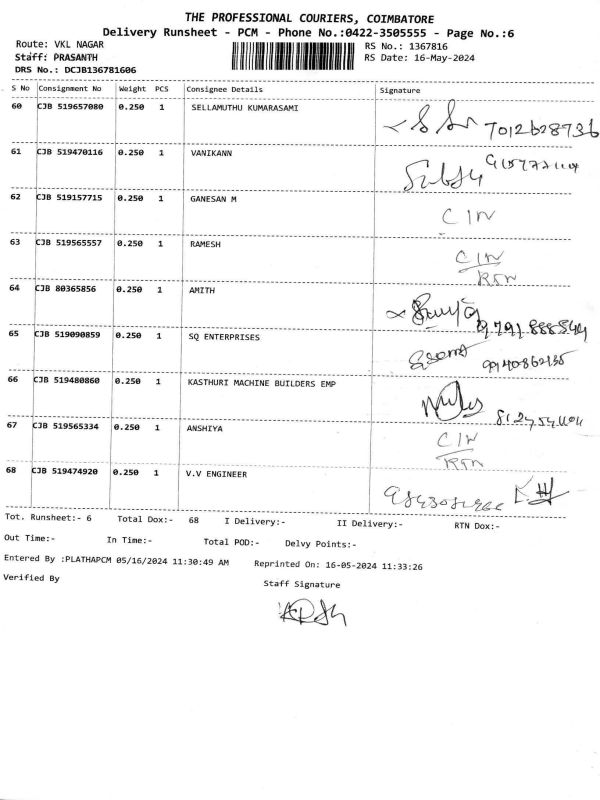 THE PROFESSIONAL COURIERS, COIMBATORE
Delivery Runsheet - PCM - Phone No.:0422-3505555 - Page No.:6
Route: VKL NAGAR RS No.: 1367816
Staff: PRASANTH RS Date: 16-May-2024
DRS No.: DCJB136781606
S No Consignment No Weight PCS Consignee Details Signature
60 CJB 519657080 0.250 1 SELLAMUTHU KUMARASAMI
7012628736
61 CJB 519470116 0.250 1 VANIKANN
62 CJB 519157715 0.250 1 GANESAN M
C/N
63 CJB 519565557 0.250 1 RAMESH
C/N
RTN
64 CJB 80365856 0.250 1 AMITH
65 CJB 519090859 0.250 1 SQ ENTERPRISES
66 CJB 519480860 0.250 1 KASTHURI MACHINE BUILDERS EMP
67 CJB 519565334 0.250 1 ANSHIYA
C/N
RTN
68 CJB 519474920 0.250 1 V.V ENGINEER
Tot. Runsheet:- 6 Total Dox:- 68 I Delivery:- II Delivery:- RTN Dox:-
Out Time:- In Time:- Total POD:- Delvy Points:-
Entered By :PLATHAPCM 05/16/2024 11:30:49 AM Reprinted On: 16-05-2024 11:33:26
Verified By Staff Signature